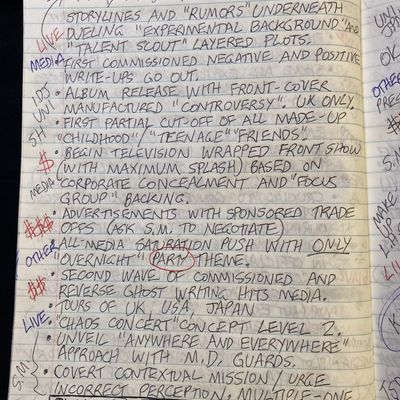 STORYLINES AND "RUMORS" UNDERNEATH
LIVE DUELING "EXPERIMENTAL BACKGROUND" AND
"TALENT SCOUT" LAYERED PLOTS.
MEDIA • FIRST COMMISSIONED NEGATIVE AND POSITIVE
WRITE-UPS GO OUT.
IDJ • ALBUM RELEASE WITH FRONT-COVER
UNI MANUFACTURED "CONTROVERSY". UK ONLY.
SH • FIRST PARTIAL CUT-OFF OF ALL MADE-UP
"CHILDHOOD"/"TEENAGE" "FRIENDS".
$ • BEGIN TELEVISION WRAPPED FRONT SHOW
(WITH MAXIMUM SPLASH) BASED ON
MEDIA CORPORATE CONCEALMENT AND "FOCUS
GROUP" BACKING.
$$$ • ADVERTISEMENTS WITH SPONSORED TRADE
OFFS (ASK S.M. TO NEGOTIATE)
OTHER • ALL-MEDIA SATURATION PUSH WITH ONLY
"OVERNIGHT" PARTY THEME.
$$ • SECOND WAVE OF COMMISSIONED AND
REVERSE GHOST WRITING HITS MEDIA.
• TOURS OF UK, USA, JAPAN
LIVE • "CHAOS CONCERT" CONCEPT LEVEL 2.
• UNVEIL "ANYWHERE AND EVERYWHERE"
S.M. APPROACH WITH M.D. GUARDS.
• COVERT CONTEXTUAL MISSION / URGE
INCORRECT PERCEPTION. MULTIPLE-ONE
UNI
OK
OTHER
PRES
S.M
MAKE-
UP
LI
K